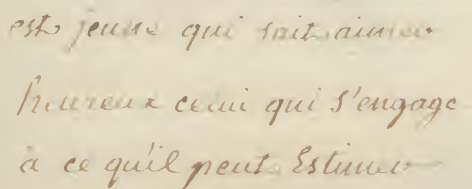 est jeune qui sait aimer
heureux celui qui s'engage
a ce qu'il peut Estimer